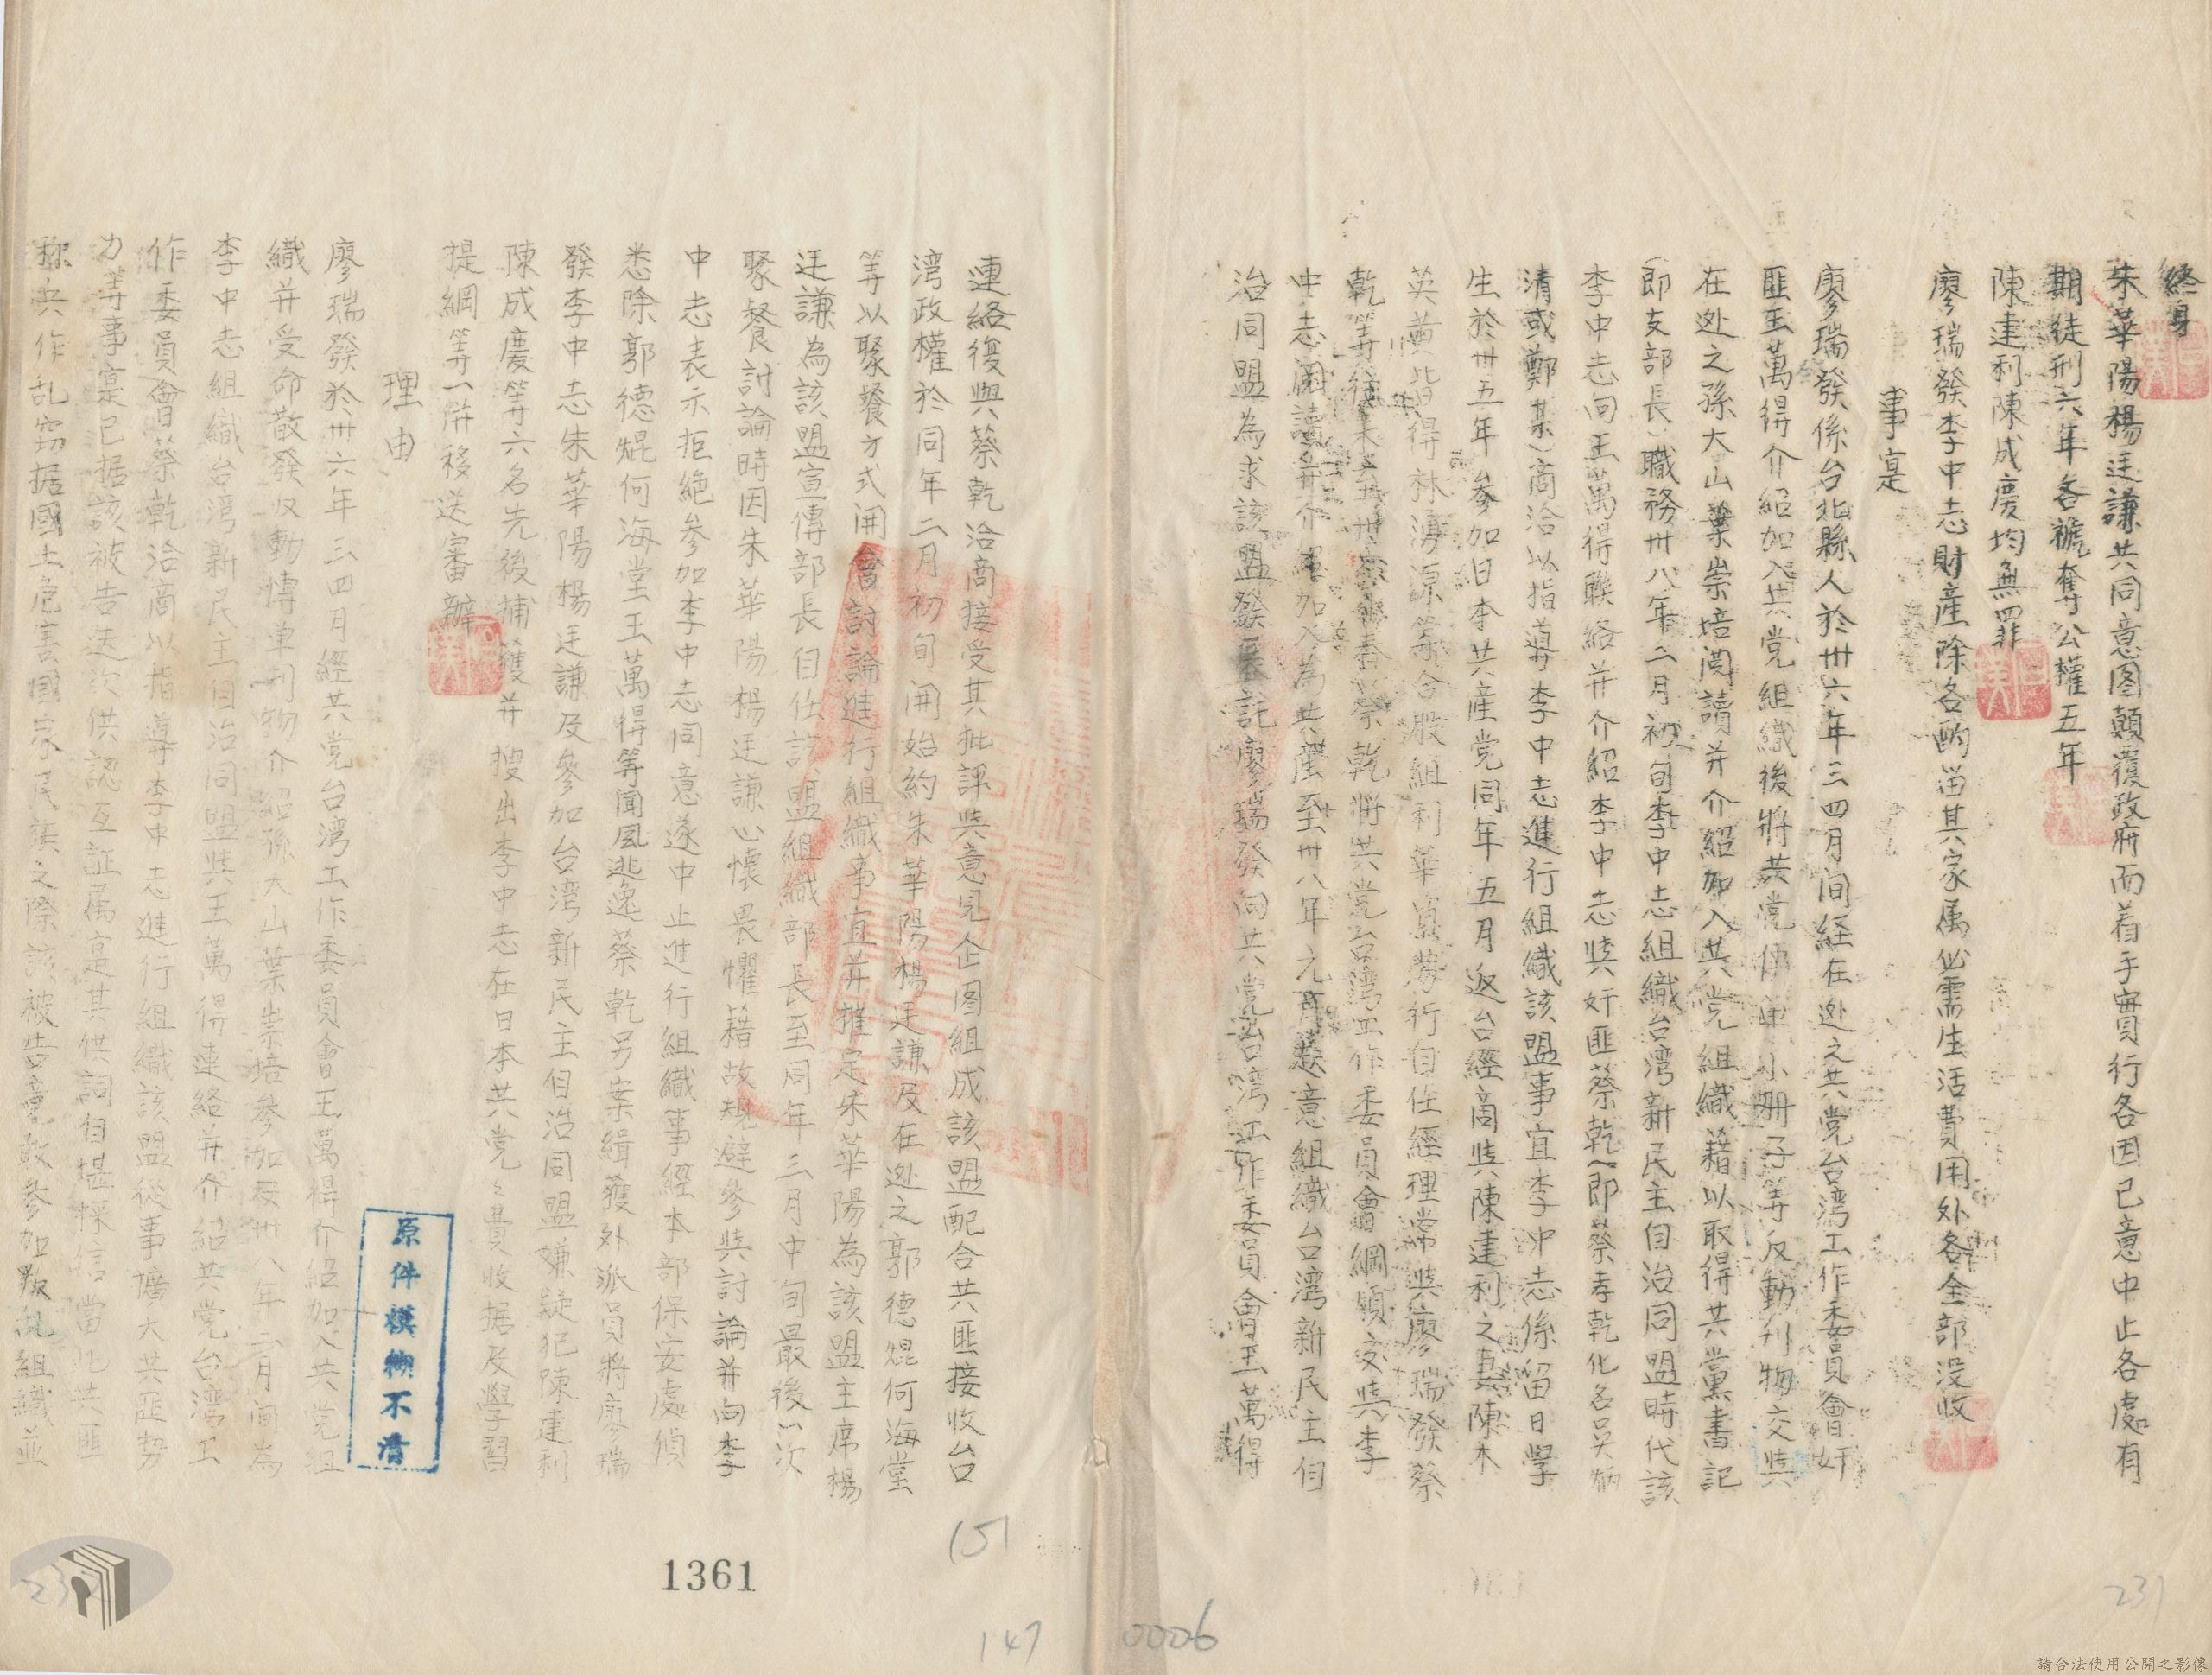 終身
朱華陽楊廷謙共同意图顛覆政府而着手實行各因已意中止各處有
期徒刑六年各褫奪公權五年
陳建利陳成慶均無罪
廖瑞發李中志財產除各酌留其家属必需生活費用外各全部没收
事寔
廖瑞發係台北縣人於卅六年三四月间経在逃之共党台湾工作委員會奸
匪王萬得介紹加入共党組織後將共党傳单小册子等反動刊物交與
在逃之孫大山葉崇培閲讀并介紹加入共党組織藉以取得共黨書記
即支部長職務卅八年二月初旬李中志組織台湾新民主自治同盟時代該
李中志向王萬得聯絡并介紹李中志與奸匪蔡乾(即蔡孝乾化名吴
清或鄭某)商洽以指導李中志進行組織該盟事宜李中志係留日學
生於卅五年参加日本共産党同年五月返台經商與陳建利之妻陳木
英黄皆得林湧源等合股組利華貿易行自任經理常與廖瑞發蔡
乾等往來蔡乾將共党台湾工作委員會綱領交與李
中志閲讀并介 加入為共産至卅八年元月 意組織台湾新民主自
治同盟為求該盟發展託廖瑞發向共党台湾工作委員會王萬得
連絡復與蔡乾洽商接受其批評與意見企图組成該盟配合共匪接收台
湾政權於同年二月初旬開始約朱華陽楊廷謙及在逃之郭德焜何海堂
等以聚餐方式開會討論進行組織事宜并推定朱華陽為該盟主席楊
廷謙為該盟宣傳部長自任該盟組織部長至同年三月中旬最後一次
聚餐討論時因朱華陽楊廷謙心懷畏懼藉故規避参與討論并向李
中志表示拒絶参加李中志同意遂中止進行組織事經本部保安處偵
悉除郭德焜何海堂王萬得等聞風逃逸蔡乾另案緝獲外派員將廖瑞
發李中志朱華陽楊廷謙及参加台湾新民主自治同盟嫌疑犯陳建利
陳成慶等六名先後捕獲并搜出李中志在日本共党之費收据及學習
提綱等一併移送審辦
理由
廖瑞發於卅六年三四月經共党台湾工作委員會王萬得介紹加入共党組
織并受命散發反動傳单刊物介紹孫大山葉崇培参加 卅八年二月间為
李中志組織台湾新民主自治同盟與王萬得連絡并介紹共党台湾工
作委員會蔡乾洽商以指導李中志進行組織該盟從事擴大共匪勢
力等事寔已据該被告迭次供認互証属寔其供詞自堪採信當此共匪
称兵作乱窃据國土危害國家民族之際該被告竟敢参加叛乱組織並
原件模糊不清
1361
151
147
0006
231
請合法使用公開之影像